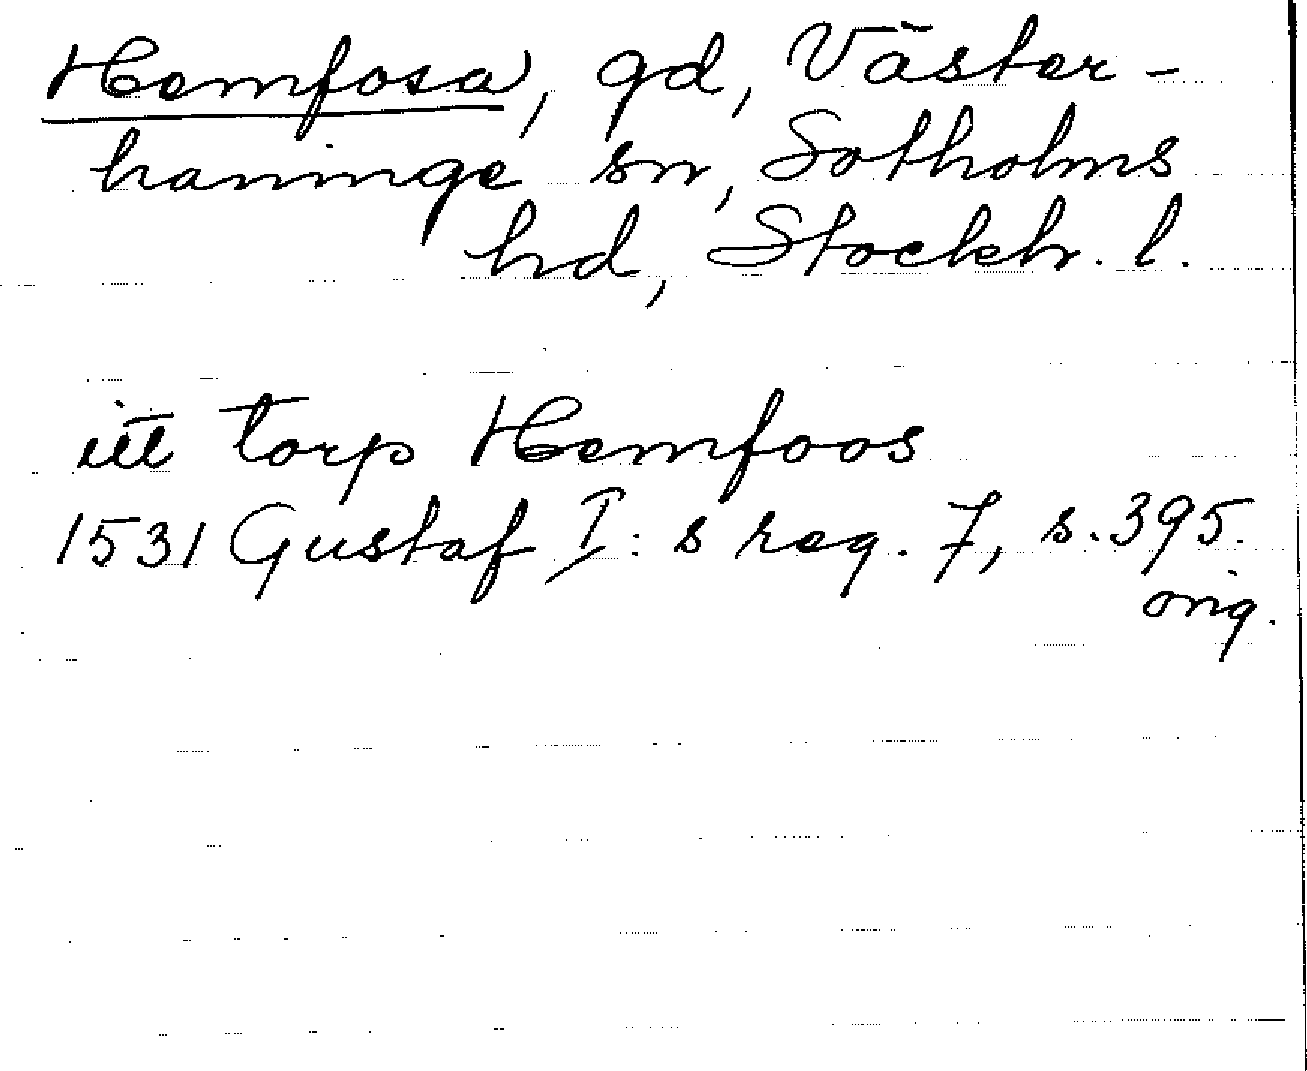 Hemfosa, gd, Väster-
haninge sn, Sotholms
hd, Stockh. l.
itt torp Hemfoos
1531 Gustaf I:s reg. 7, s. 395.
orig.